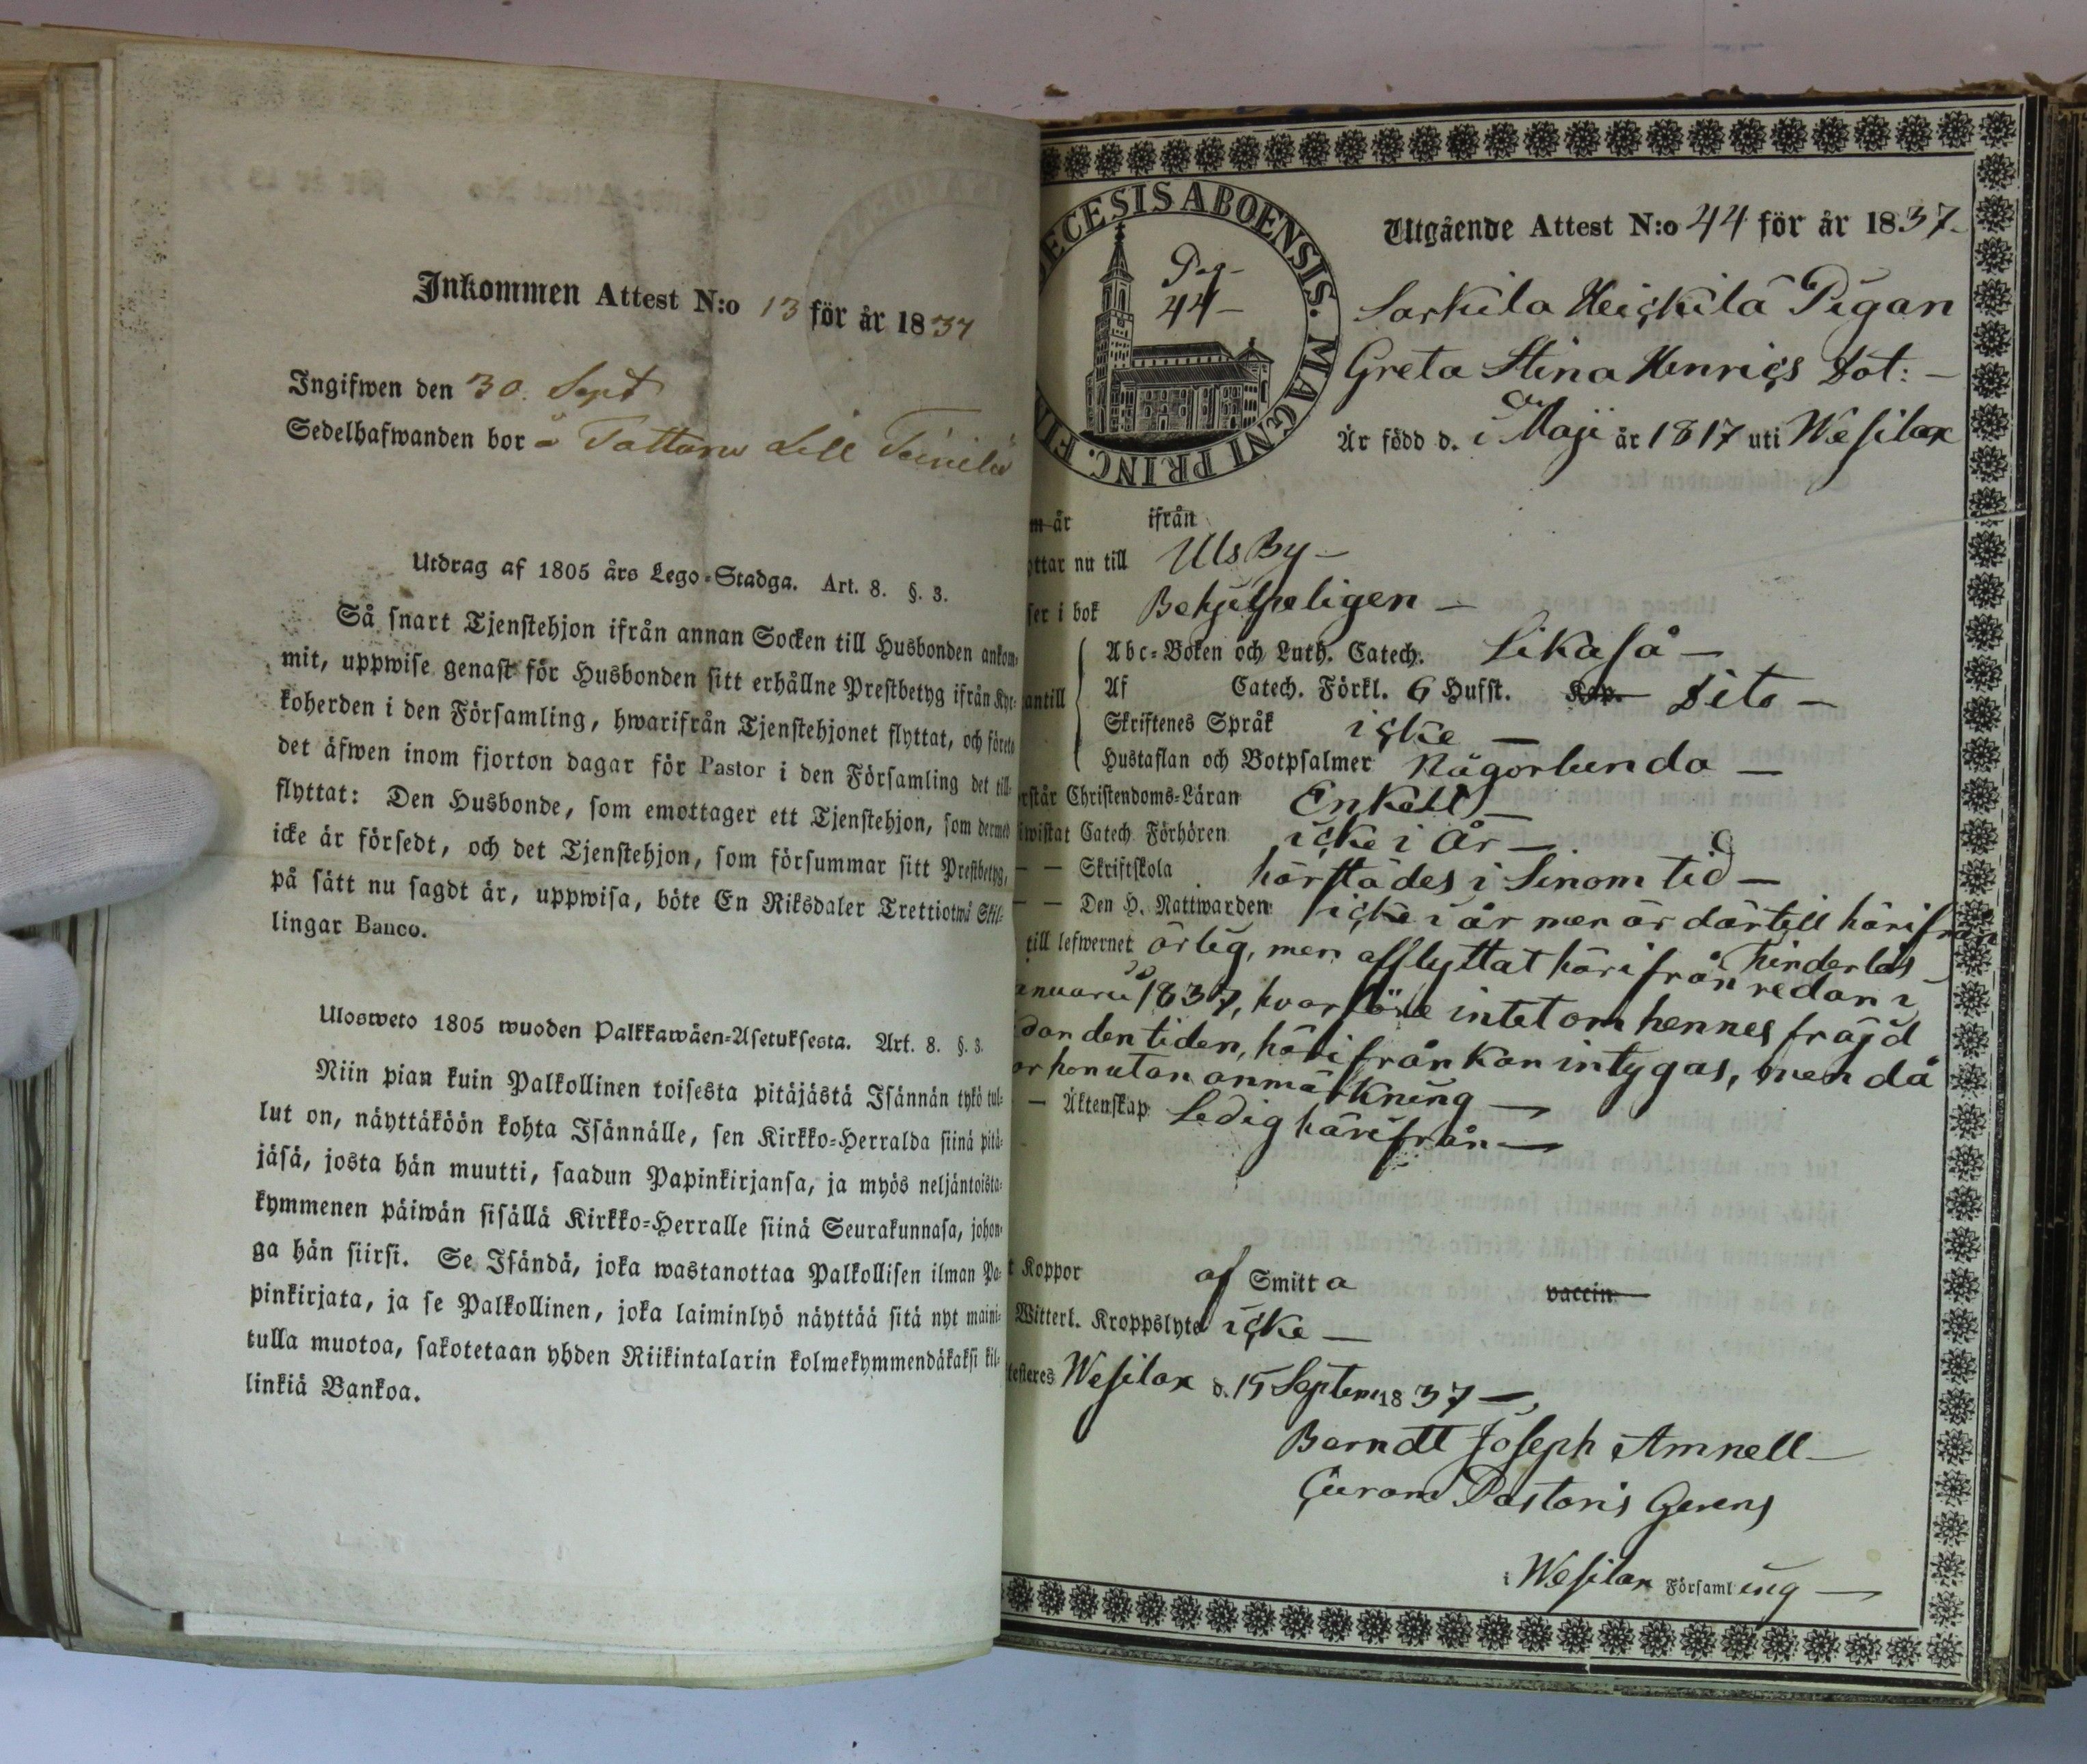 Inkommen Attest N:o 13 för år 1837
Ingifwen den 30. Sept
Sedelhafwanden bor å Tattara Lill
Utdrag af 1805 års Lego-Stadga. Art. 8. §. 3.
Så snart Tjenstehjon ifrån annan Socken till Husbonden ankom-
mit, uppwise genast för Husbonden sitt erhållne Prestbetyg ifrån Kyr-
koherden i den Församling, hwarifrån Tjenstehjonet flyttat, och förete
det äfwen inom fjorton dagar för Pastor i den Församling det till-
flyttat: Den Husbonde, som emottager ett Tjenstehjon, som dermed
icke är försedt, och det Tjenstehjon, som försummar sitt Prestbetyg,
på sätt nu sagdt är, uppwisa, böte En Riksdaler Trettiotwå Skil-
lingar Banco.
Ulosweto 1805 wuoden Palkkawäen-Asetuksesta. Art. 8. §. 3.
Niin pian kuin Palkollinen toisesta pitäjästä Isännän tykö tul-
lut on, näyttäköön kohta Isännälle, sen Kirkko-Herralda siinä pitä-
jäsä, josta hän muutti, saadun Papinkirjansa, ja myös neljäntoista-
kymmenen päiwän sisällä Kirkko-Herralle siinä Seurakunnasa, johon-
ga hän siirsi. Se Isändä, joka wastanottaa Palkollisen ilman Pa-
pinkirjata, ja se Palkollinen, joka laiminlyö näyttää sitä nyt maini-
tulla muotoa, sakotetaan yhden Riikintalarin kolmekymmendäkaksi kil-
linkiä Bankoa.
ECESIS ABOENSIS. MAGNI PRINC. FIN
Pag-
44-
Utgående Attest N:o 44 för år 1837-
Sarkila Heickilä Pigan
Greta Stina Henrics Dot: -
Är född d. i Maji år 1817 uti Wesilax
m år ifrån
ttar nu till Ulsby -
ser i bok Behjelpeligen -
Abc-Boken och Luth. Catech. Likaså -
antill Af Catech. Förkl. 6 Hufst. Kap. Dito -
Skriftenes Språk icke -
Hustaflan och Botpsalmer Någorlunda -
rstår Christendoms-Läran Enkelt -
iwistat Catech. Förhören icke i år -
- - Skriftskola härstädes i Sinom tid -
- - Den H. Nattwarden icke i år men är därtill härifrån
hinderlös -
till lefwernet ärlig, men afflyttat härifrån redan i
anuarii 1837, hvarföre intet om hennes fräjd
dan den tiden, härifrån kan intygas, men då
ar hon utan anmärkning -
- Äktenskap Ledig härifrån -
t Koppor af Smitta vaccin.
Witterl. Kroppslyte icke -
testeres Wesilax d. 15 Septem 1837 -
Berndt Joseph Amnell -
Curam Pastoris Gerens
i Wesilax Församling -